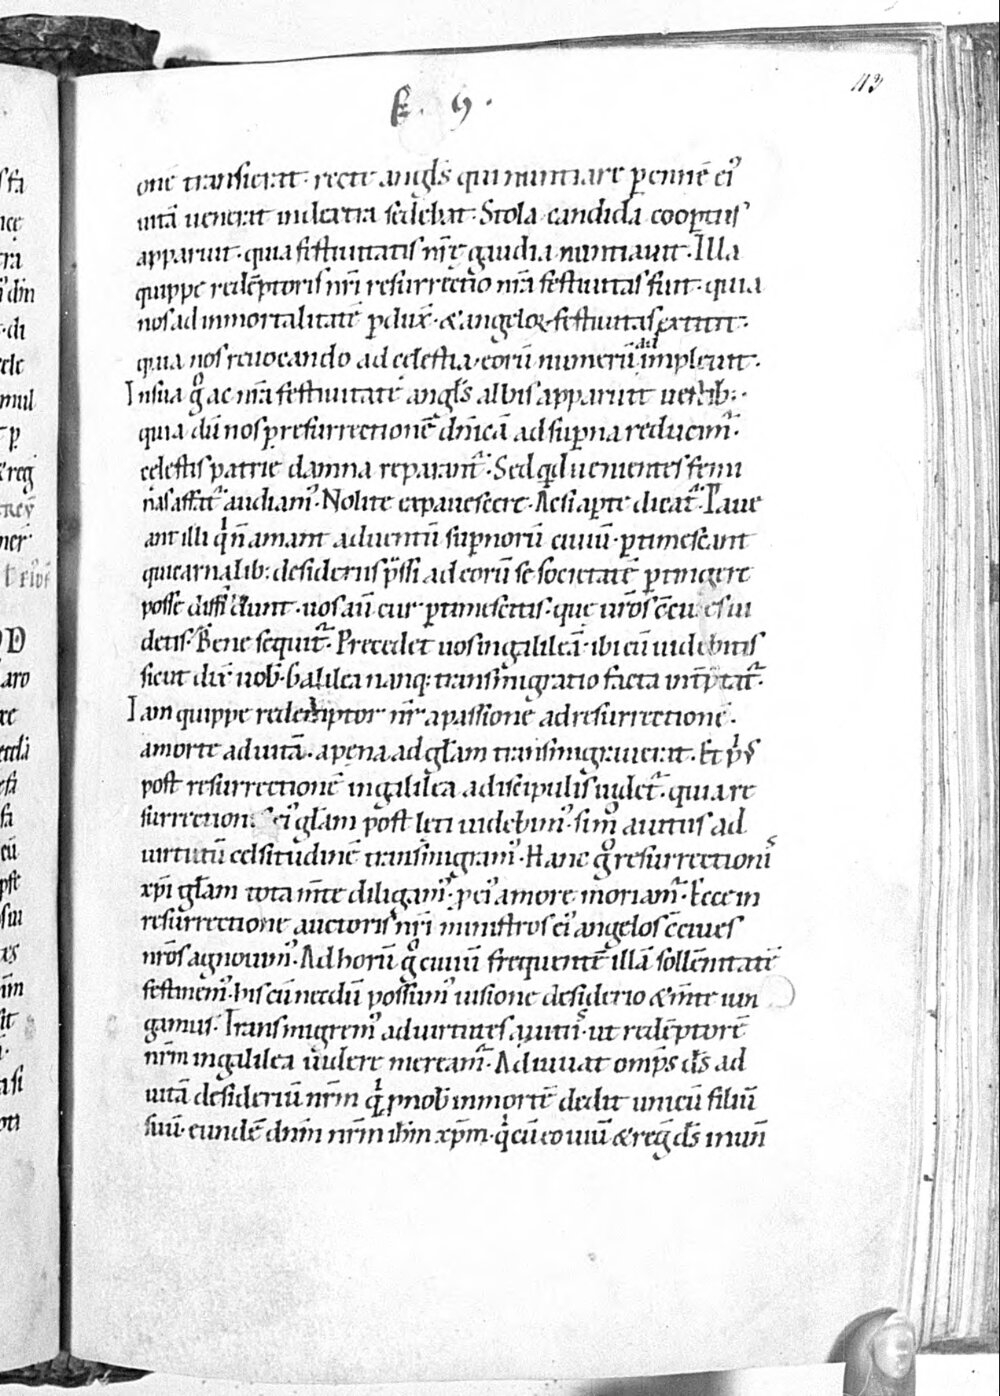 E. 9.
43
onē transierat. recte angl's qui nuntiare ꝑennē ei᾽
uitā uenerat indextra sedebat. Stola candida cooꝑtus
apparuit. quia festiuitatis nr̄ę gaudia nuntiauit. Illa
quippe redēptoris nr̄i resurrectio nr̄a festiuitas fuit. quia
nos ad inmortalitatē ꝑdux̄. & angeloꝝ festiuitas extitit.
quia nos reuocando ad celestia. eorū numerū adimpleuit.
In sua gͦ ac nr̄a festiuitate angl's albis apparuit uestib:.
quia dū nos ꝑ resurrectionē dn̄icā ad suꝑna reducim᾽.
celestis patrie damna reparant᾽. Sed qd uenientes femi
nas affat᾽ audiam᾽. Nolite expauescere. Ac si aꝑte dicat᾽. Paue
ant illi qͥ n̄ amant aduentū suꝑnorū ciuiū. ꝑtimescant
qui carnalib: desideriis p̄ssi ad eorū se societatē ꝑtingere
posse diffidunt. uos aū cur ꝑtimescitis. que ur̄os c̄ciues ui
detis. Bene sequit᾽. Precedet uos in galileā. ibi eū uidebitis
sicut dix̄ uob̄. Galilea nanq: transmigratio facta int̄p̄tat᾽.
Iam quippe redemptor nr̄ a passione ad resurrectionē.
a morte ad uitā. a pena ad gl̄am transmigrauerat. Et pͥ᾽s
post resurrectionē in galilea a discipulis uidet᾽. quia re
surrectionis ei᾽ gl̄am post leti uidebim᾽. si m᾽ a uitiis ad
uirtutū celsitudinē transmigram᾽. Hanc gͦ resurrectionis
xp̄i gl̄am tota m̄te diligam᾽. ꝓ ei᾽ amore moriam᾽. Ecce in
resurrectione auctoris nr̄i ministros ei᾽ angelos c̄ciues
nr̄os agnouim᾽. Ad horū gͦ ciuiū frequentē illā sollēnitatē
festinem᾽. his cū necdū possum᾽ uisione desiderio & m̄te iun
gamus. Transmigrem᾽ ad uirtutes a uitiis. ut redēptorē
nr̄m in galilea uidere meream᾽. Adiuuat omp̄s ds̄ ad
uitā desideriū nr̄m qͥ ꝓ nob̄ in mortē dedit unicū filiū
suū. eundē dn̄m nr̄m ih̄m xp̄m. qͥ cū eo uiuit & reḡ ds̄ in un̄